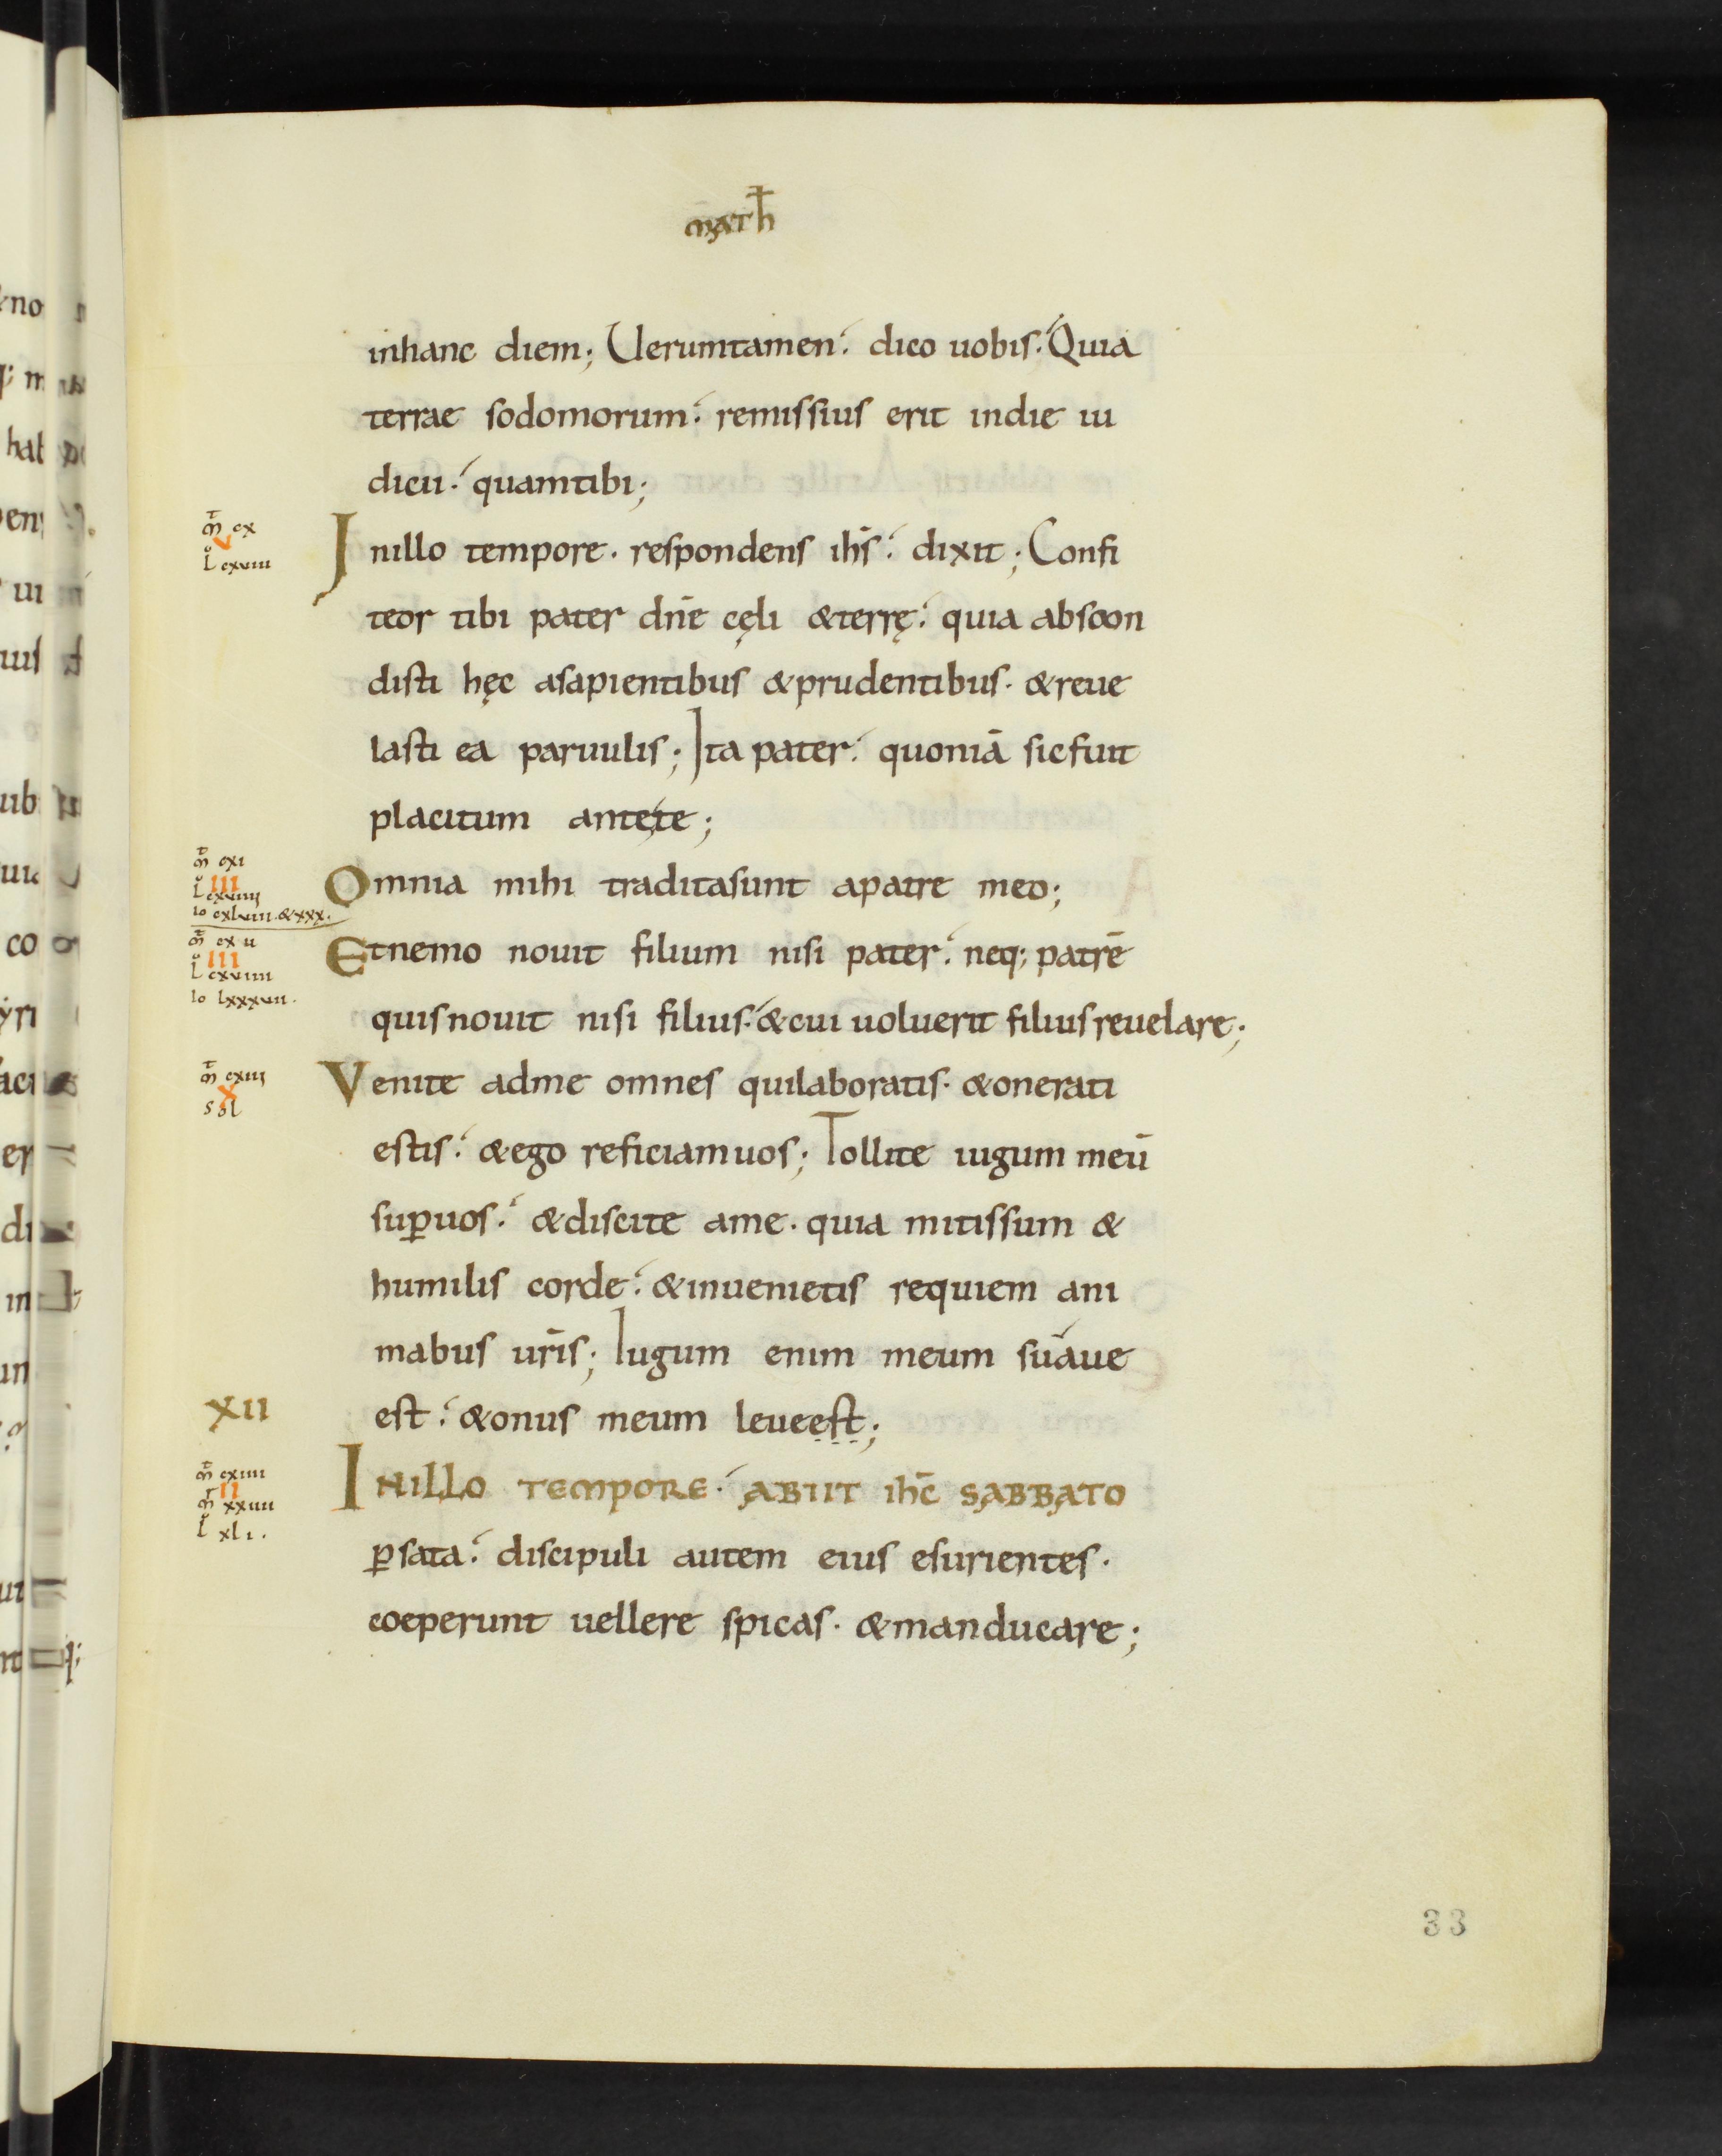 math̄
inhanc diem; Uerumtamen. dico uobis. Quia
terrae sodomorum. remissius erit indie iu
dicii. quamtibi;
m̄ cx
V
L cxviii
Inillo tempore. respondens ihs̄. dixit; Confi
teor tibi pater dn̄e cęli &terrę. quia abscon
disti hęc asapientibus &prudentibus. &reue
lasti ea paruulis; Ita pater. quoniā sicfuit
placitum antete;
m̄ cxi
III
L cxviiii
io cxlviii. &xxx.
Omnia mihi traditasunt apatre meo;
m̄ cxii
III
L cxviiii
io lxxxvii.
Etnemo nouit filium nisi pater. neq; patrē
quisnouit nisi filius. &cui uoluerit filiusreuelare;
m̄ cxiii
X
sol
Venite adme omnes quilaboratis. &onerati
estis. &ego reficiamuos; Tollite iugum meū
suꝑuos. &discite ame. quia mitissum &
humilis corde. &inuenietis requiem ani
mabus ur̄is; Iugum enim meum suaue
est. &onus meum leueest;
XII
m̄ cxiiii
II
m̄ xxiiii
L xli.
Inillo tempore. abiit ihc̄ sabbato
ꝑsata. discipuli autem eius esurientes.
coeperunt uellere spicas. &manducare;
33